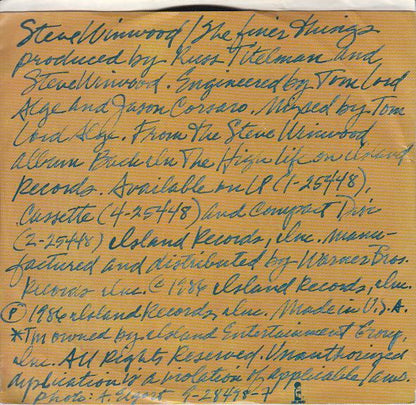 Steve Winwood/The finer Things
produced by Russ Titelman and
Steve Winwood. Engineered by Tom Lord
Alge and Jason Corsaro. Mixed by Tom
Lord Alge. From The Steve Winwood
album Back In The High Life on Island
Records. Available on LP (1-25448),
Cassette (4-25448) and Compact Disc
(2-25448) Island Records, Inc. Manu-
factured and distributed by Warner Bros.
Records Inc. © 1986 Island Records, Inc.
℗ 1986 Island Records, Inc. Made in U.S.A.
*Tm owned by Island Entertainment Group,
Inc. All Rights Reserved. Unauthorized
duplication is a violation of applicable laws.
Photo: A. Elgort 7-28498-A